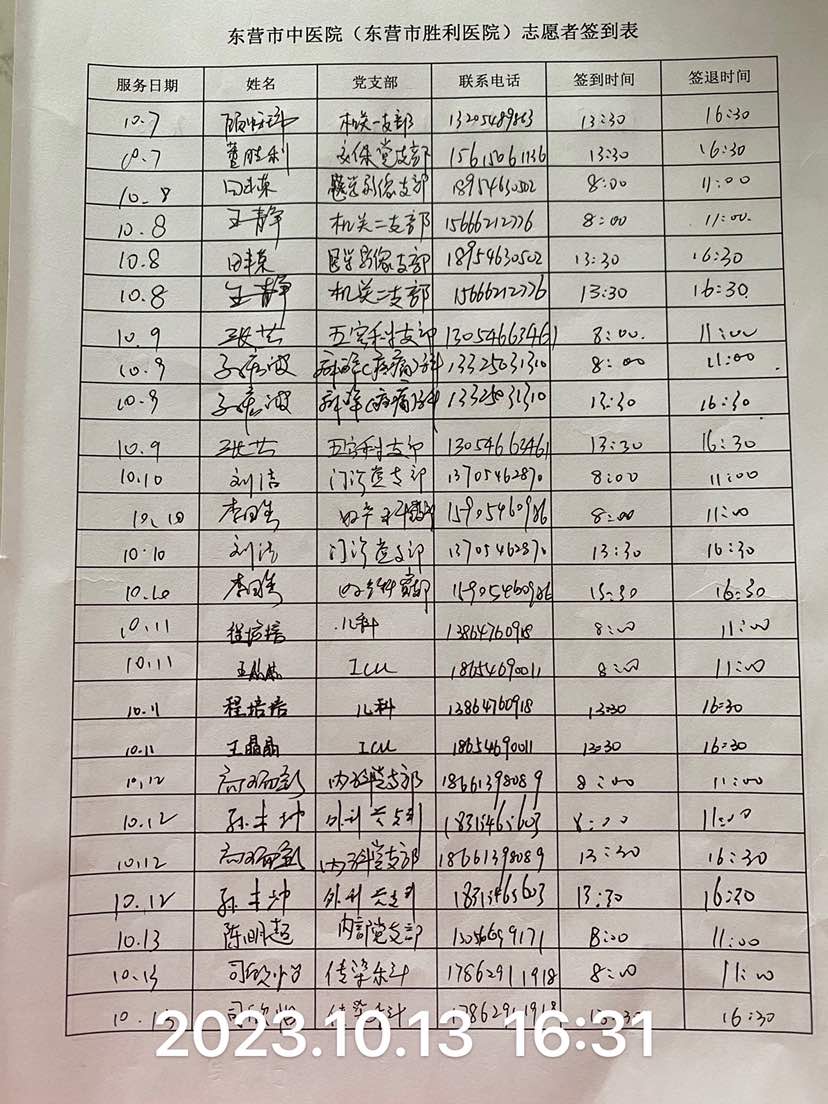 东营市中医院（东营市胜利医院）志愿者签到表
服务日期 姓名 党支部 联系电话 签到时间 签退时间
10.7 机关一支部 13:30 16:30
10.7 董胜利 党支部 15615061136 13:30 16:30
10.8 医学影像支部 18954630502 8:00 11:00
10.8 王静 机关二支部 15666212776 8:00 11:00.
10.8 医学影像支部 18954630502 13:30 16:30
10.8 王静 机关二支部 15666212776 13:30 16:30.
10.9 五官科支部 13054663461 8:00. 11:00
10.9 13325031310 8:00 11:00
10.9 13325031310 13:30 16:30
10.9 五官科支部 13:30 16:30
10.10 刘洁 门诊党支部 13705462870 8:00 11:00
10.10 15905460986 8:00 11:00
10.10 刘洁 门诊党支部 13705462870 13:30 16:30
10.10 15905460986 16:30
10.11 程培培 儿科 13864760918 8:00 11:00
10.11 王晶晶 ICU 18654690011 8:00 11:00
10.11 程培培 儿科 13864760918 13:30 16:30
10.11 王晶晶 ICU 18654690011 13:30 16:30
10.12 内科党支部 18661398089 8:00 11:00
10.12 外科党支部 8:00 11:00
10.12 内科党支部 18661398089 13:30 16:30
10.12 外科党支部 13:30 16:30
10.13 陈明超 党支部 8:00 11:00
10.13 传染 17862911918 8:00 11:00
10.13 17862911918 13:30 16:30
2023.10.13 16:31